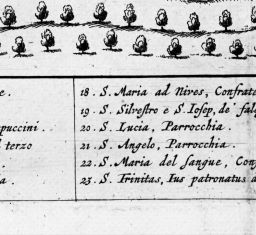 e. 18. S. Maria ad Nives, Confrate
19. S. Silvestro e S. Iosep, de' fal
puccini. 20. S. Lucia, Parrocchia.
l terzo 21. S. Angelo, Parrocchia.
22. S. Maria del sangue, Con
a. 23. S. Trinitas, Ius patronatus a